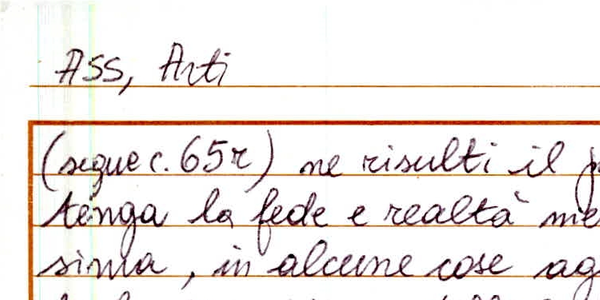 ASS, Arti
(segue c. 65r) ne risulti il
tenga la fede e realtà me
sima, in alcune cose ag